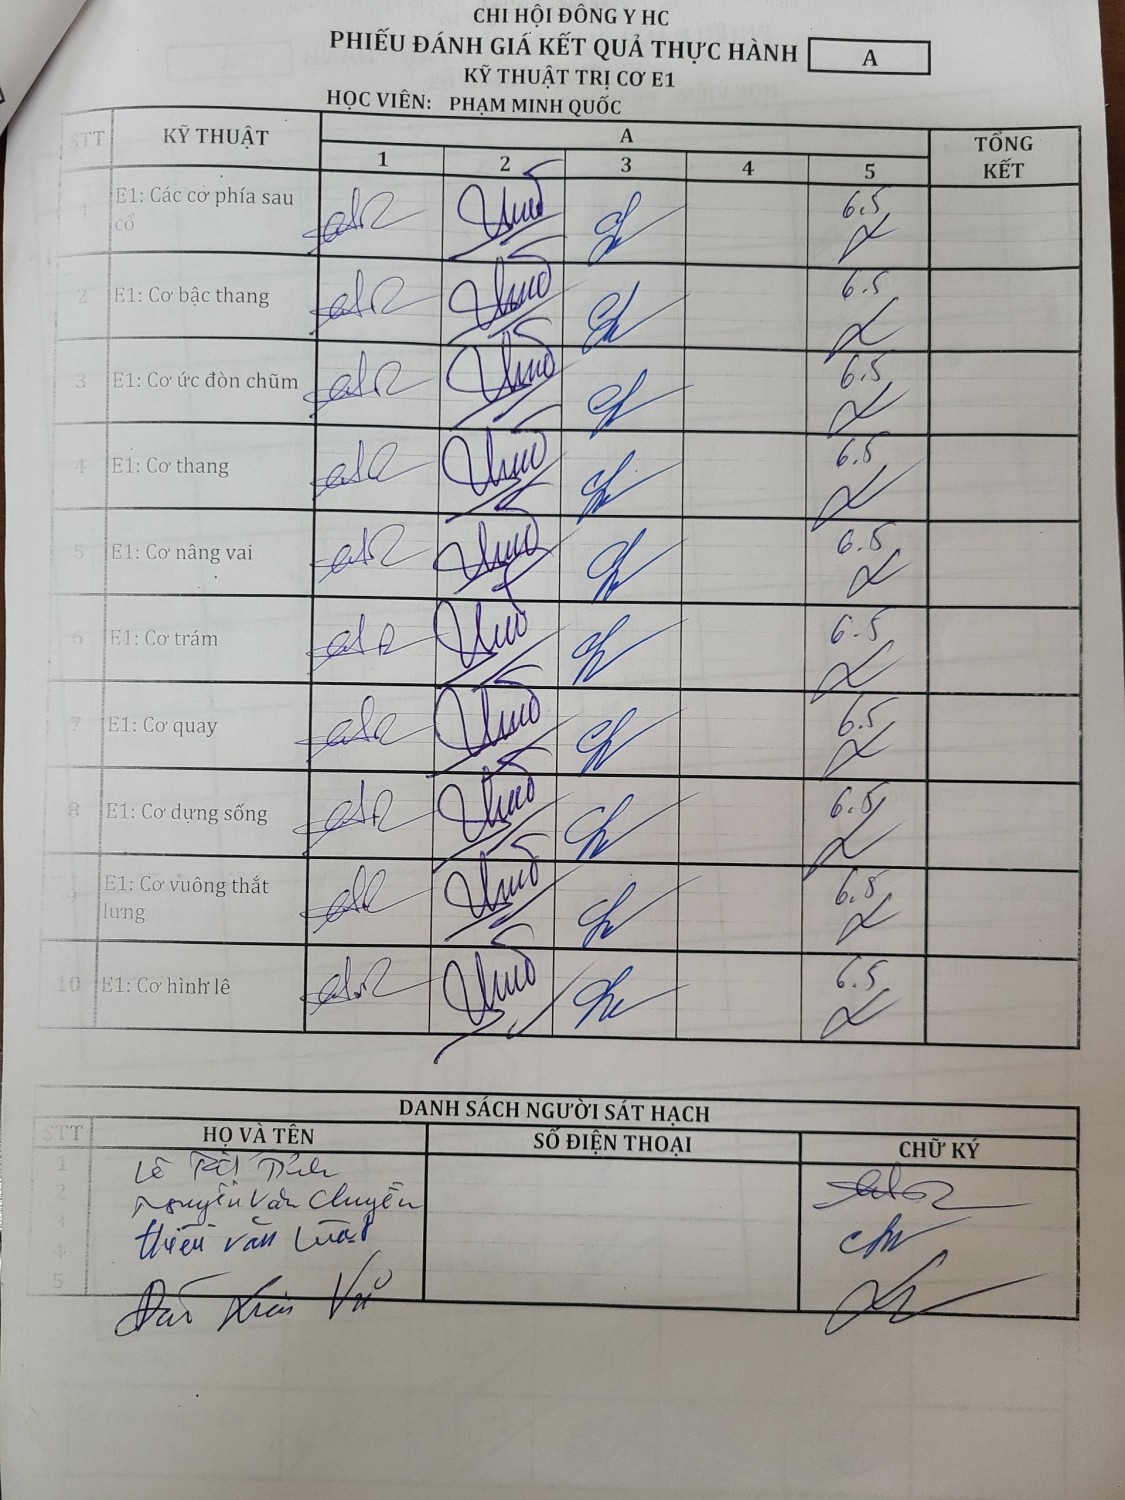 CHI HỘI ĐÔNG Y HC
PHIẾU ĐÁNH GIÁ KẾT QUẢ THỰC HÀNH A
KỸ THUẬT TRỊ CƠ E1
HỌC VIÊN: PHẠM MINH QUỐC
STT KỸ THUẬT A TỔNG KẾT
1 2 3 4 5
1 E1: Các cơ phía sau cổ 6.5
2 E1: Cơ bậc thang 6.5
3 E1: Cơ ức đòn chũm 6.5
4 E1: Cơ thang 6.5
5 E1: Cơ nâng vai 6.5
6 E1: Cơ trám 6.5
7 E1: Cơ quay 6.5
8 E1: Cơ dựng sống 6.5
9 E1: Cơ vuông thắt lưng 6.5
10 E1: Cơ hình lê 6.5
DANH SÁCH NGƯỜI SÁT HẠCH
STT HỌ VÀ TÊN SỐ ĐIỆN THOẠI CHỮ KÝ
1 Lê
2 Nguyễn Văn Chuyên
3 văn
4
5